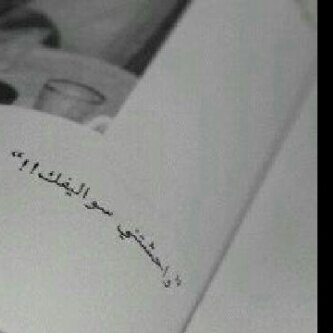 "واحشتني سواليفك!!"